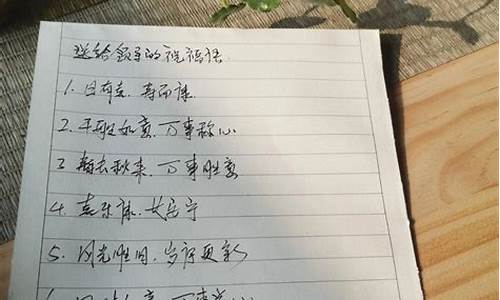 送给领导的祝福语
1. 日有喜. 寿而康.
2. 平胜如意. 万事称心
3 暑去秋来. 万事胜意
4. 喜乐康. 长长宁
5. 风光胜旧. 岁序更新